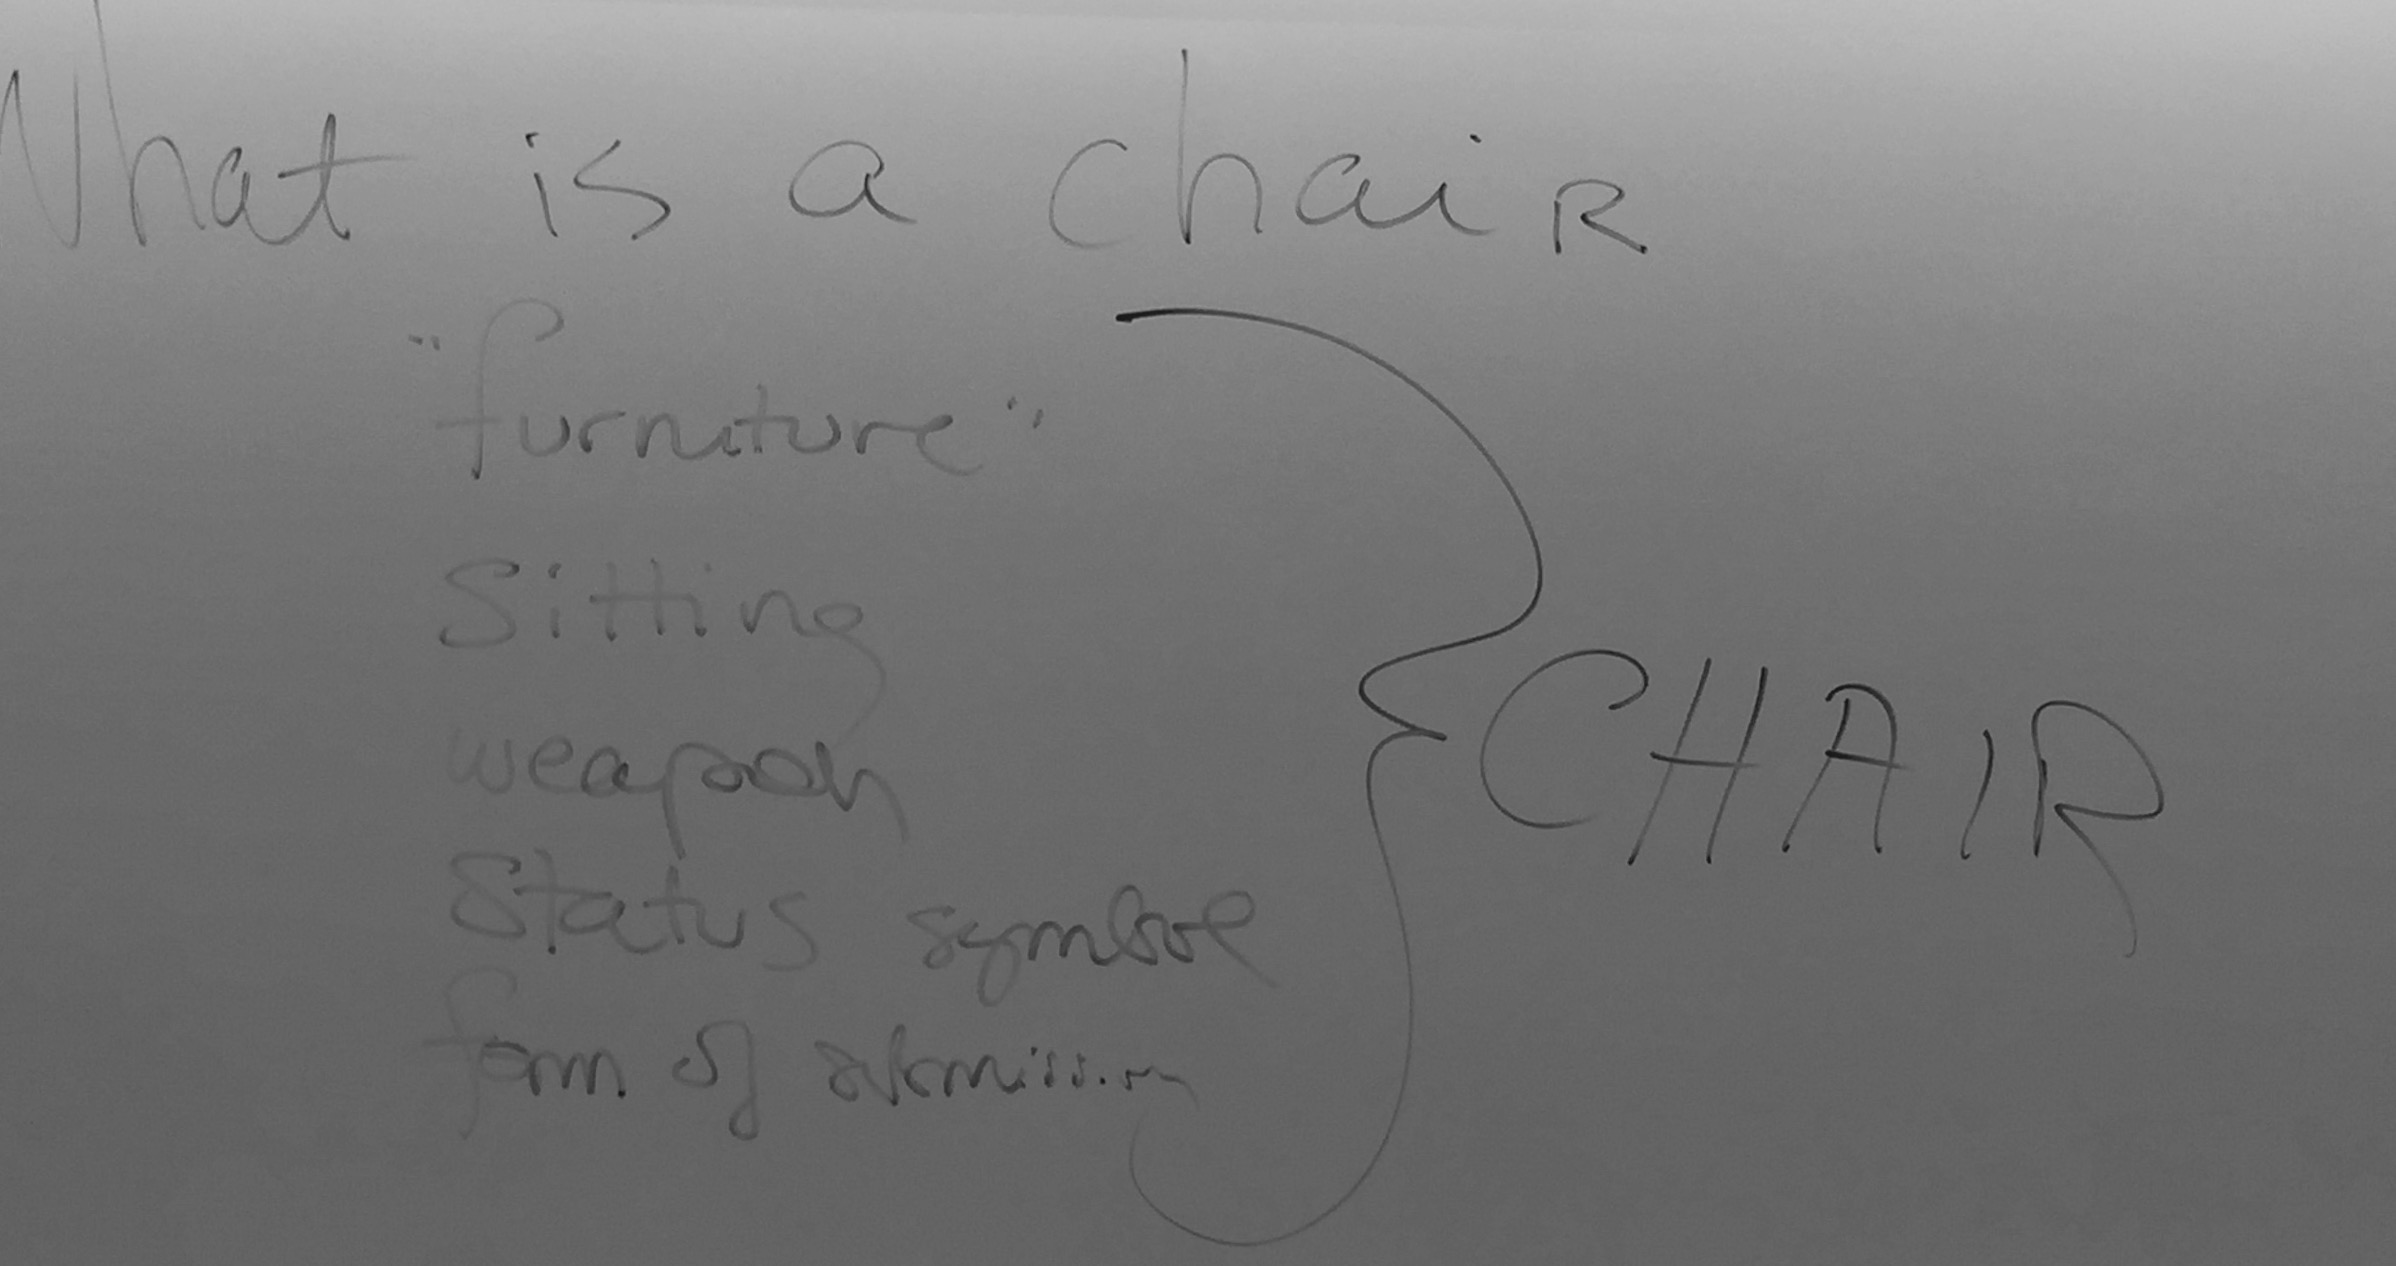 What is a chaiR
"furniture"
Sitting
weapon
Status symbol
form of submission
CHAIR